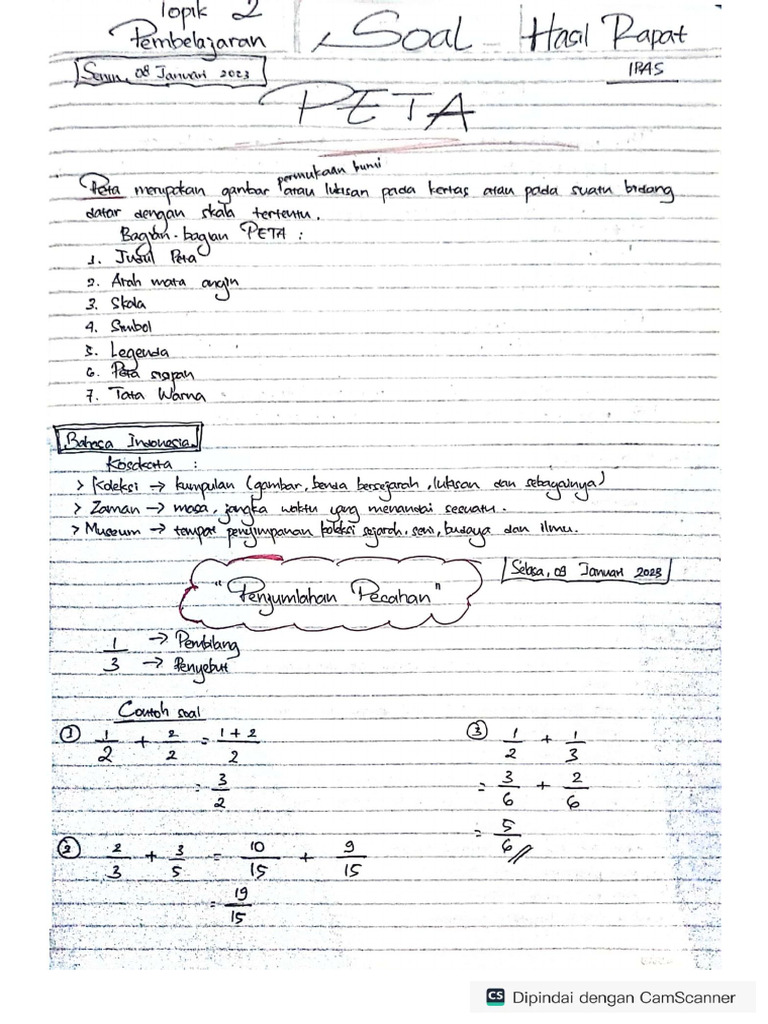 Topik 2
Pembelajaran
Soal Hasil Rapat
Senin, 08 Januari 2023
IPAS
PETA
permukaan bumi
Peta merupakan gambar atau lukisan pada kertas atau pada suatu bidang
datar dengan skala tertentu.
Bagian-bagian PETA :
1. Judul Peta
2. Arah mata angin
3. Skala
4. Simbol
5. Legenda
6. Peta
7. Tata Warna
Bahasa Indonesia
Kosakata :
> Koleksi → kumpulan (gambar, benda bersejarah, lukisan dan sebagainya)
> Zaman → masa, jangka waktu yang menandai sesuatu.
> Museum → tempat penyimpanan koleksi sejarah, seni, budaya dan ilmu.
Selasa, 09 Januari 2023
"Penjumlahan Pecahan"
1 → Pembilang
3 → Penyebut
Contoh soal
① 1/2 + 2/2 = 1+2/2
= 3/2
② 2/3 + 3/5 = 10/15 + 9/15
= 19/15
③ 1/2 + 1/3
= 3/6 + 2/6
= 5/6 //
CS Dipindai dengan CamScanner